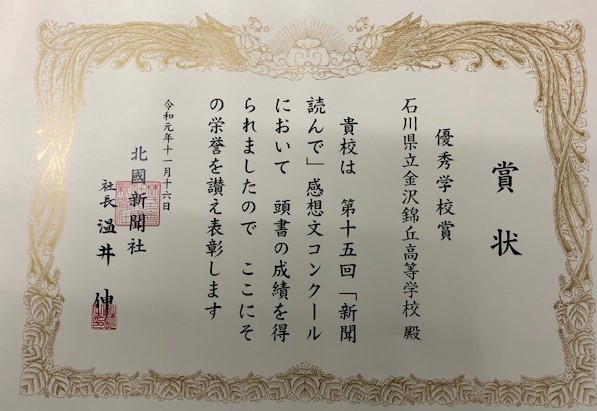 賞状
優秀学校賞
石川県立金沢錦丘高等学校 殿
貴校は 第十五回「新聞
読んで」感想文コンクール
において 頭書の成績を得
られましたので ここにそ
の栄誉を讃え表彰します
令和元年十一月十六日
北國新聞社
社長 温井 伸